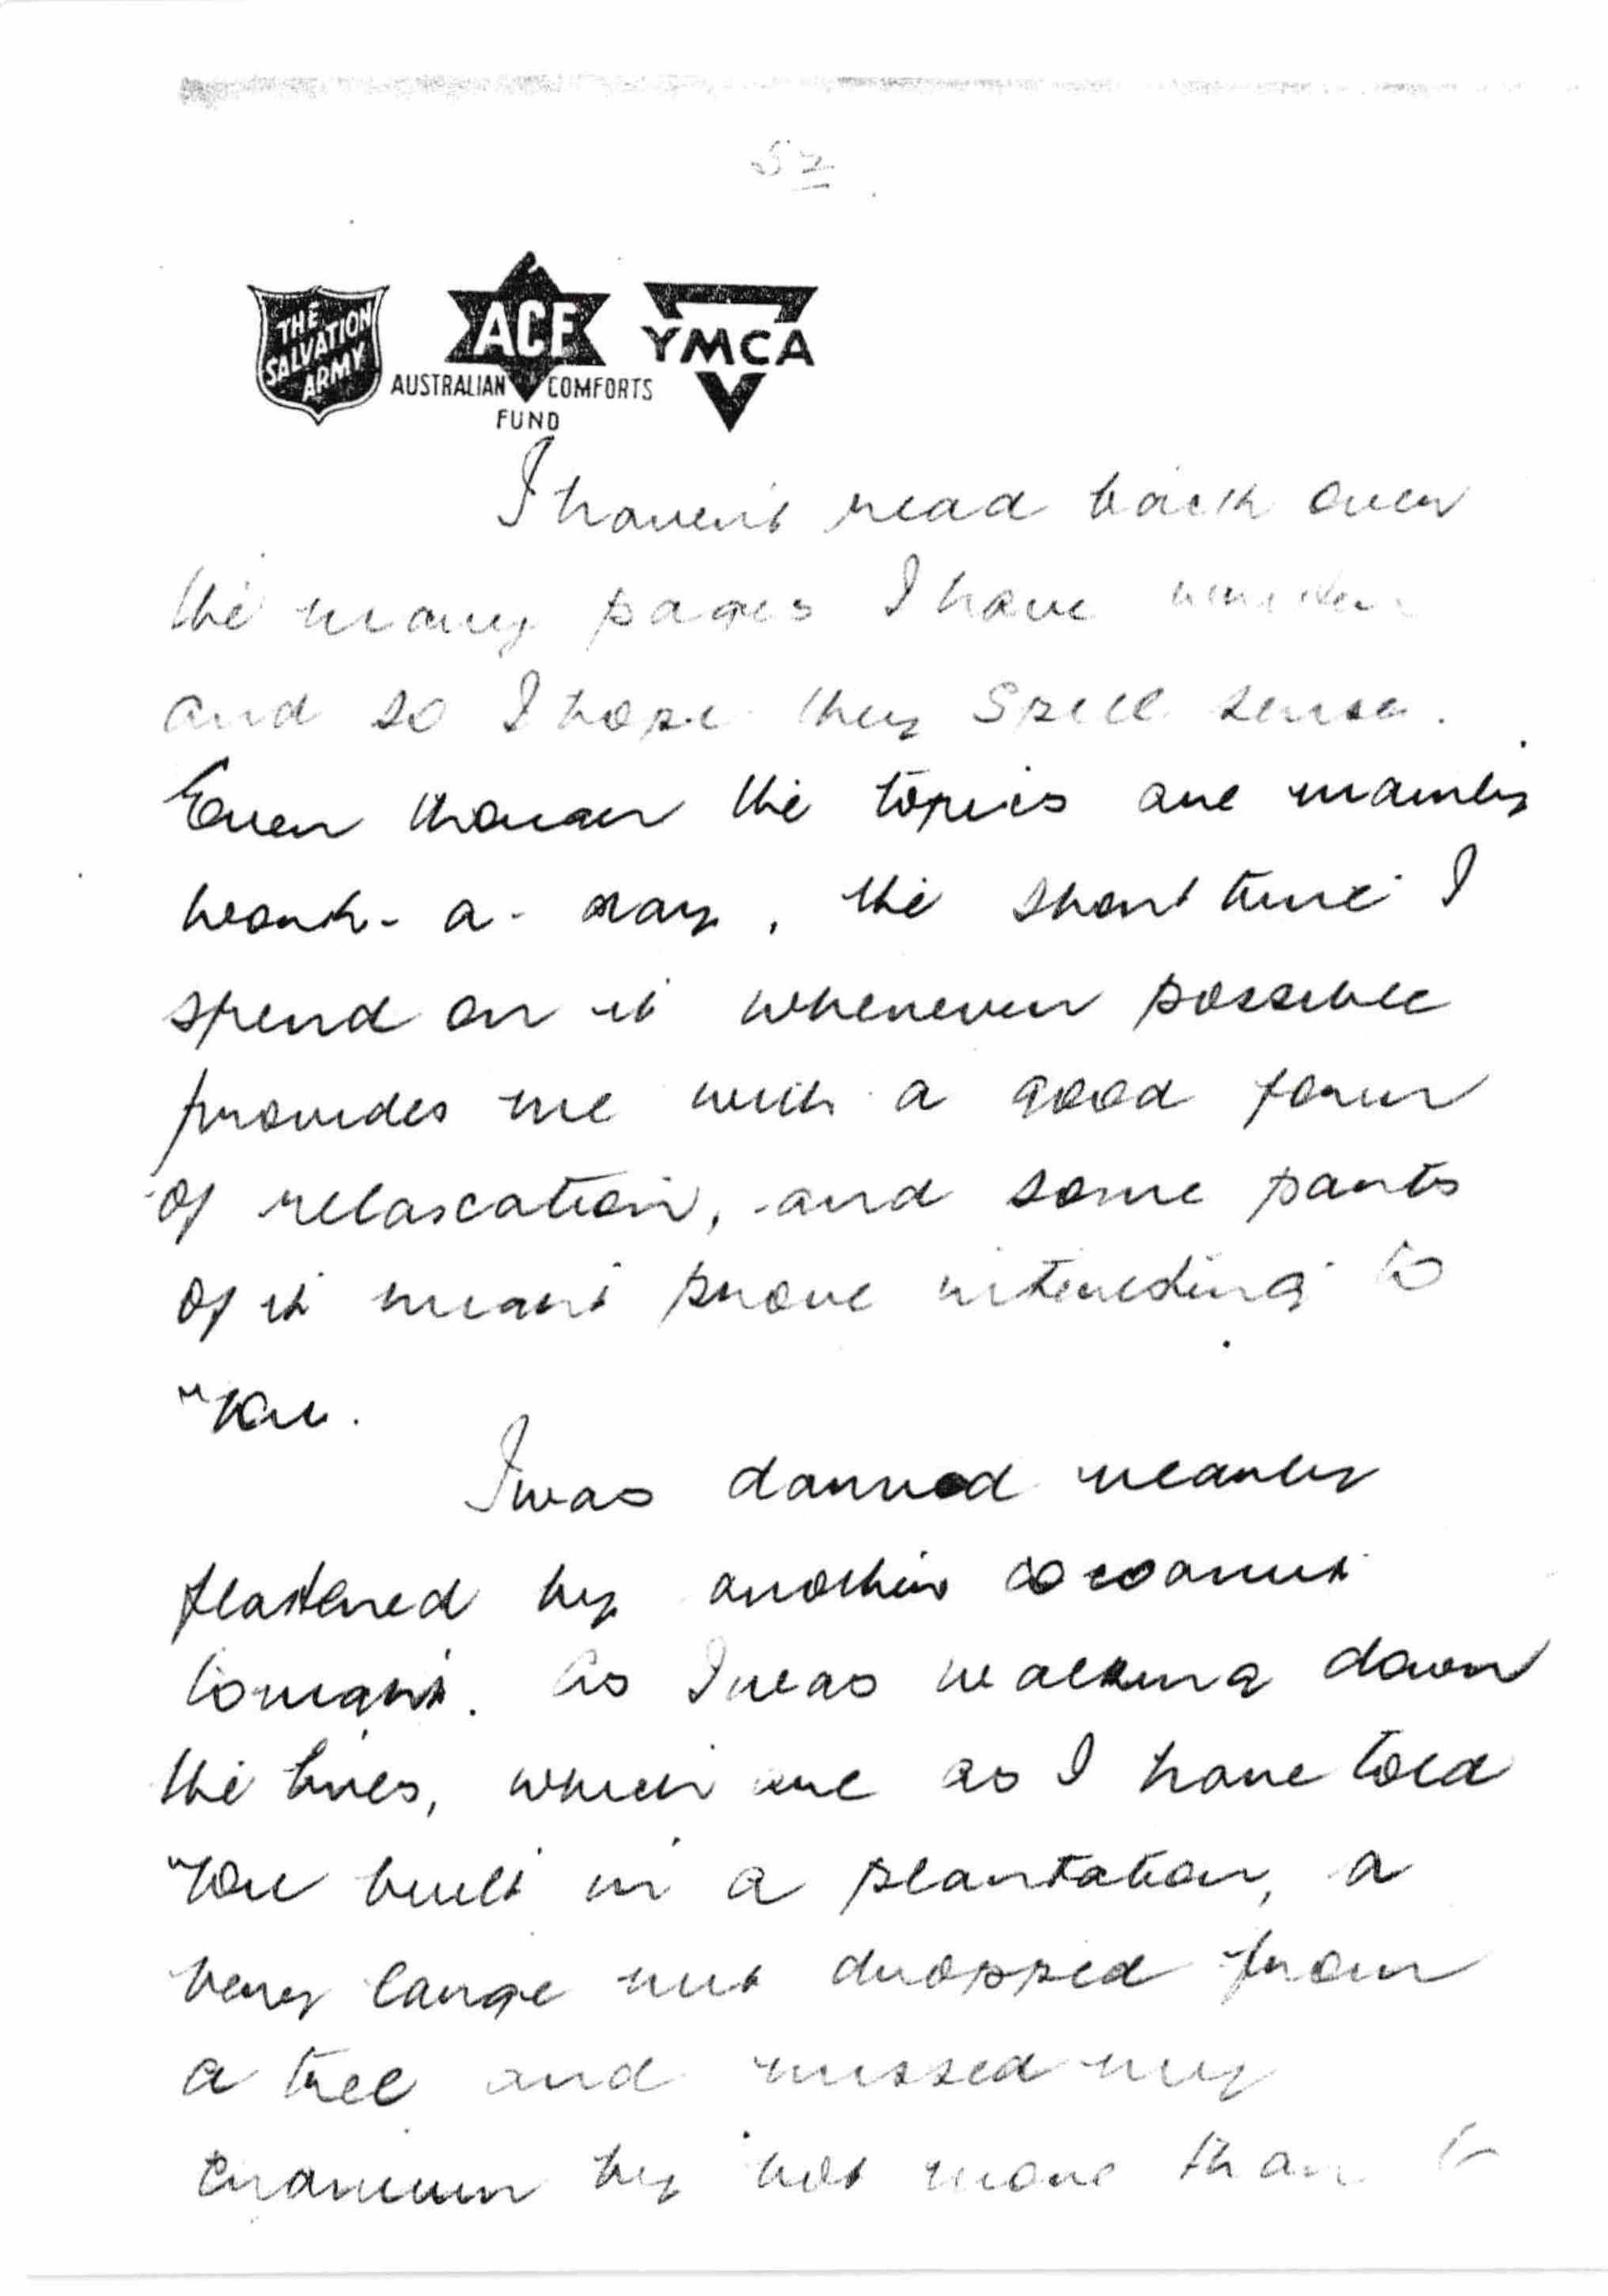 52
THE SALVATION ARMY
ACF
AUSTRALIAN COMFORTS FUND
YMCA
I haven't read back over
the many pages I have written
and so I hope they spell sense.
Even though the topics are mainly
work-a-day, the short time I
spend on it whenever possible
provides me with a good form
of relaxation, and some parts
of it might prove interesting to
you.
I was damned nearly
flattened by another cocoanut
tonight. As I was walking down
the lines, which are as I have told
you built in a plantation, a
very large nut dropped from
a tree and missed my
cranium by not more than